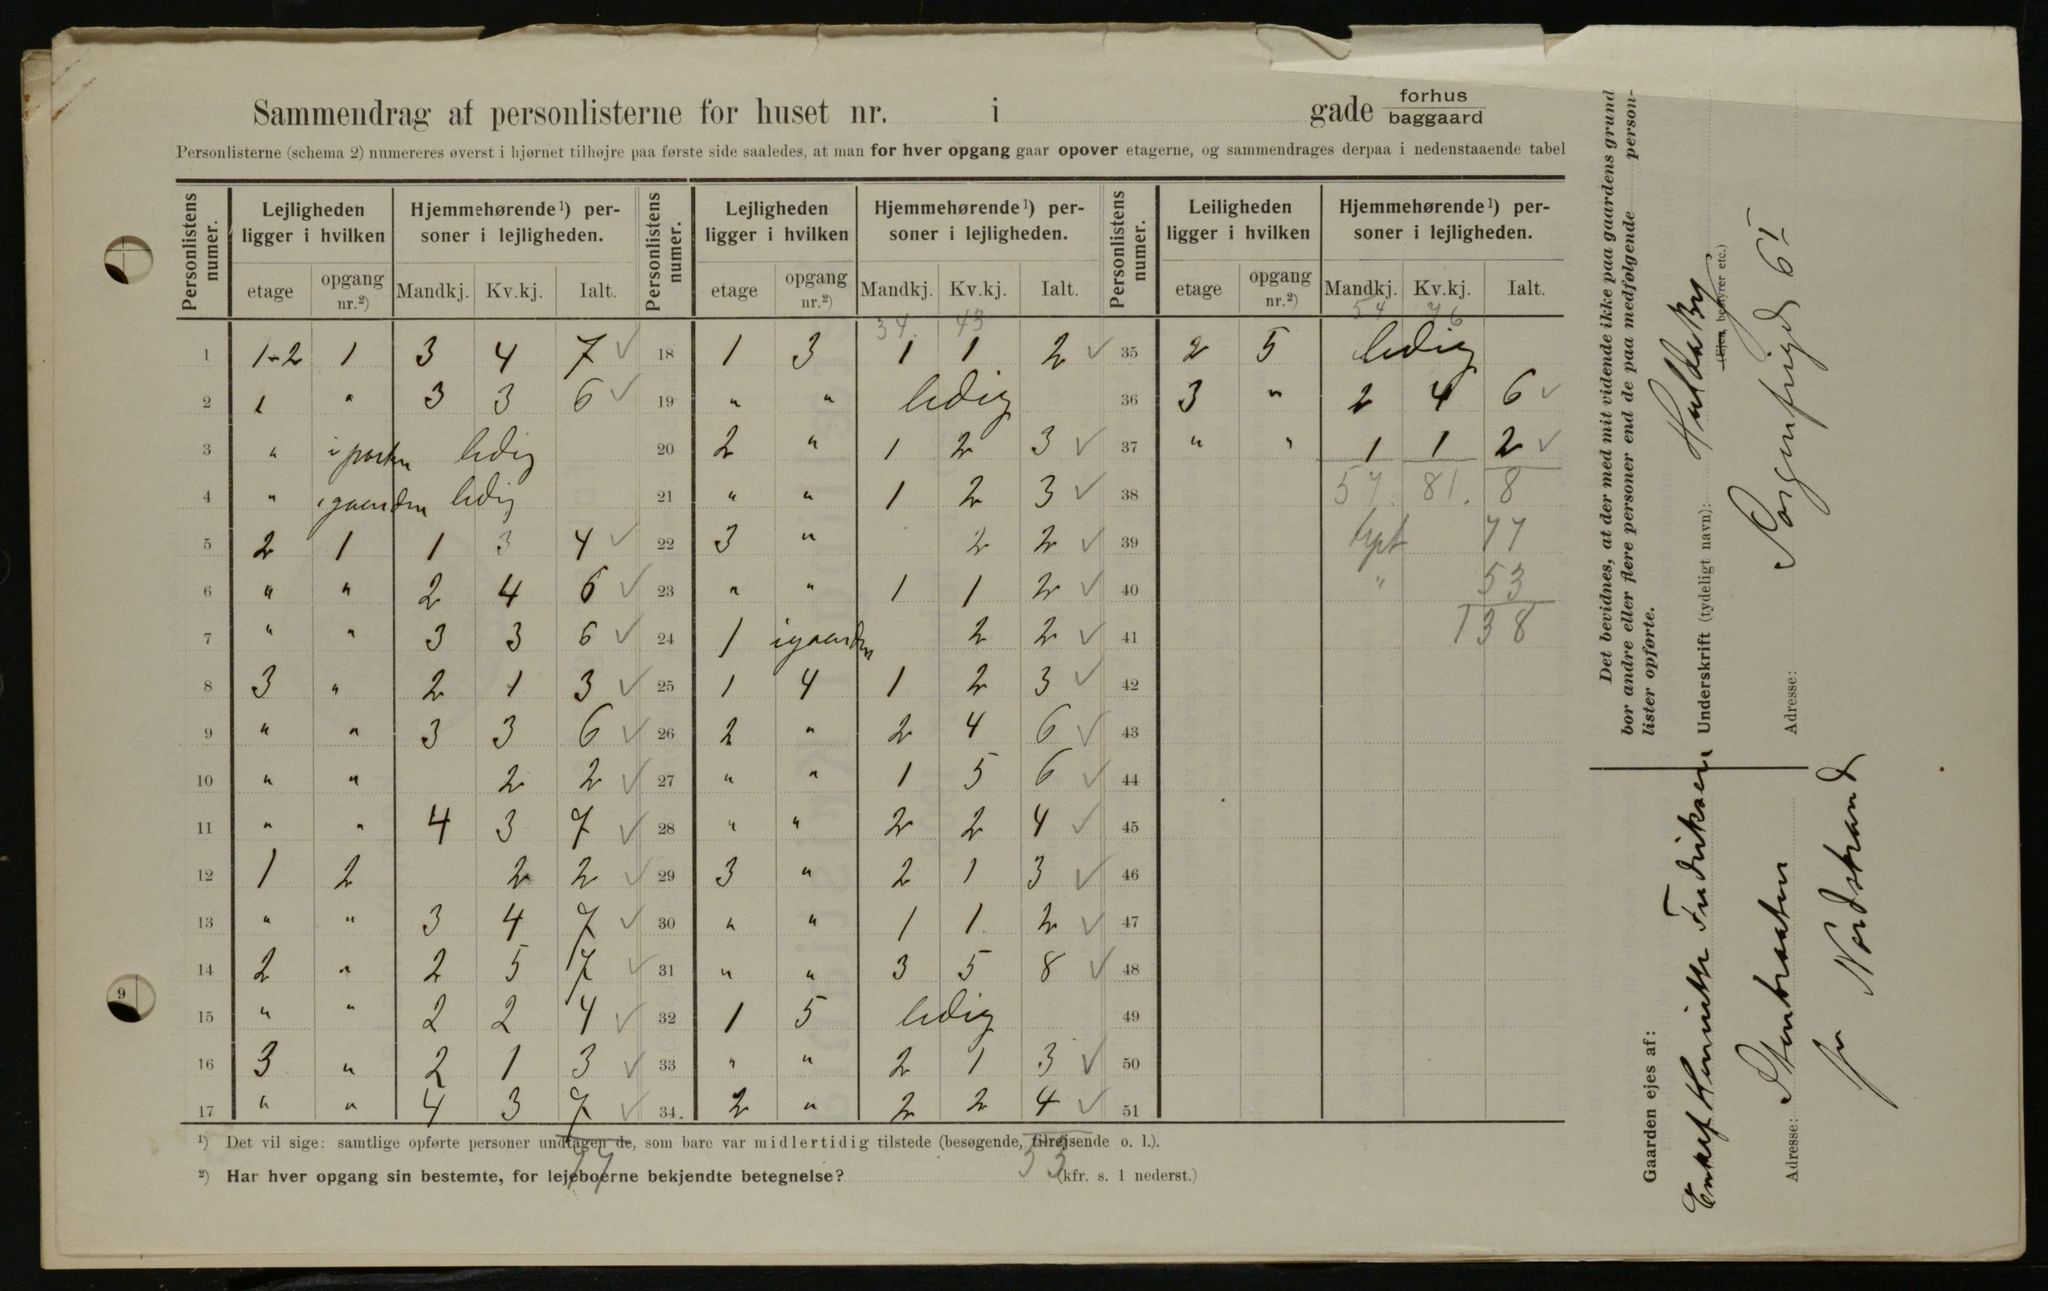 Sammendrag af personlisterne for huset nr. i gade forhus baggaard
Personlisterne (schema 2) numereres øverst i hjørnet tilhøjre paa første side saaledes, at man for hver opgang gaar opover etagerne, og sammendrages derpaa i nedenstaaende tabel
Personlistens numer. Lejligheden ligger i hvilken Hjemmehørende¹) personer i lejligheden. Personlistens numer. Lejligheden ligger i hvilken Hjemmehørende¹) personer i lejligheden. Personlistens numer. Leiligheden ligger i hvilken Hjemmehørende¹) personer i lejligheden.
etage opgang nr.²) Mandkj. Kv.kj. Ialt. etage opgang nr.²) Mandkj. Kv.kj. Ialt. etage opgang nr.²) Mandkj. Kv.kj. Ialt.
34. 43 54 76
1 1-2 1 3 4 7 ✓ 18 1 3 1 1 2 ✓ 35 2 5 ledig
2 1 " 3 3 6 ✓ 19 " " ledig 36 3 " 2 4 6 ✓
3 " i porten ledig 20 2 " 1 2 3 ✓ 37 " " 1 1 2 ✓
4 " i gaarden ledig 21 " " 1 2 3 ✓ 38 57. 81. 8
5 2 1 1 3 4 ✓ 22 3 " 2 2 ✓ 39 trpt 77
6 " " 2 4 6 ✓ 23 " " 1 1 2 ✓ 40 " 53
7 " " 3 3 6 ✓ 24 1 i gaarden 2 2 ✓ 41 138
8 3 " 2 1 3 ✓ 25 1 4 1 2 3 ✓ 42
9 " " 3 3 6 ✓ 26 2 " 2 4 6 ✓ 43
10 " " 2 2 ✓ 27 " " 1 5 6 ✓ 44
11 " " 4 3 7 ✓ 28 " " 2 2 4 ✓ 45
12 1 2 2 2 ✓ 29 3 " 2 1 3 ✓ 46
13 " " 3 4 7 ✓ 30 " " 1 1 2 ✓ 47
14 2 " 2 5 7 ✓ 31 " " 3 5 8 ✓ 48
15 " " 2 2 4 ✓ 32 1 5 ledig 49
16 3 " 2 1 3 ✓ 33 " " 2 1 3 ✓ 50
17 " " 4 3 7 ✓ 34. 2 " 2 2 4 ✓ 51
¹) Det vil sige: samtlige opførte personer undtagen de, som bare var midlertidig tilstede (besøgende, tilrejsende o. l.).
77 53
²) Har hver opgang sin bestemte, for lejeboerne bekjendte betegnelse? (kfr. s. 1 nederst.)
Det bevidnes, at der med mit vidende ikke paa gaardens grund
bor andre eller flere personer end de paa medfølgende person-
lister opførte.
Underskrift (tydeligt navn):
(Ejer, bestyrer etc.)
Adresse: Sorgenfrigd 6I
Gaarden ejes af:
Enkef Henriette Fredriksen
Adresse:
pr Nordstrand
9